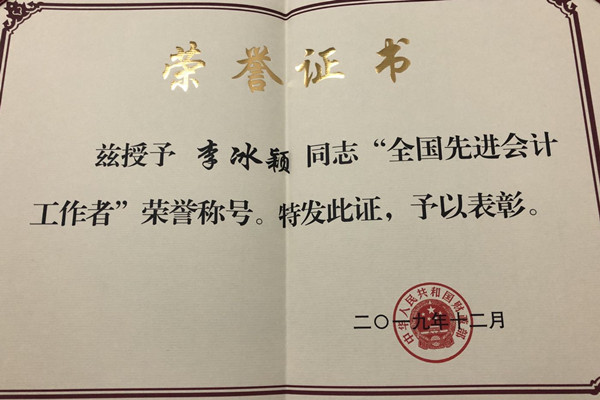 荣誉证书
兹授予 李冰颖 同志“全国先进会计
工作者”荣誉称号。特发此证，予以表彰。
二〇一九年十二月
中华人民共和国财政部